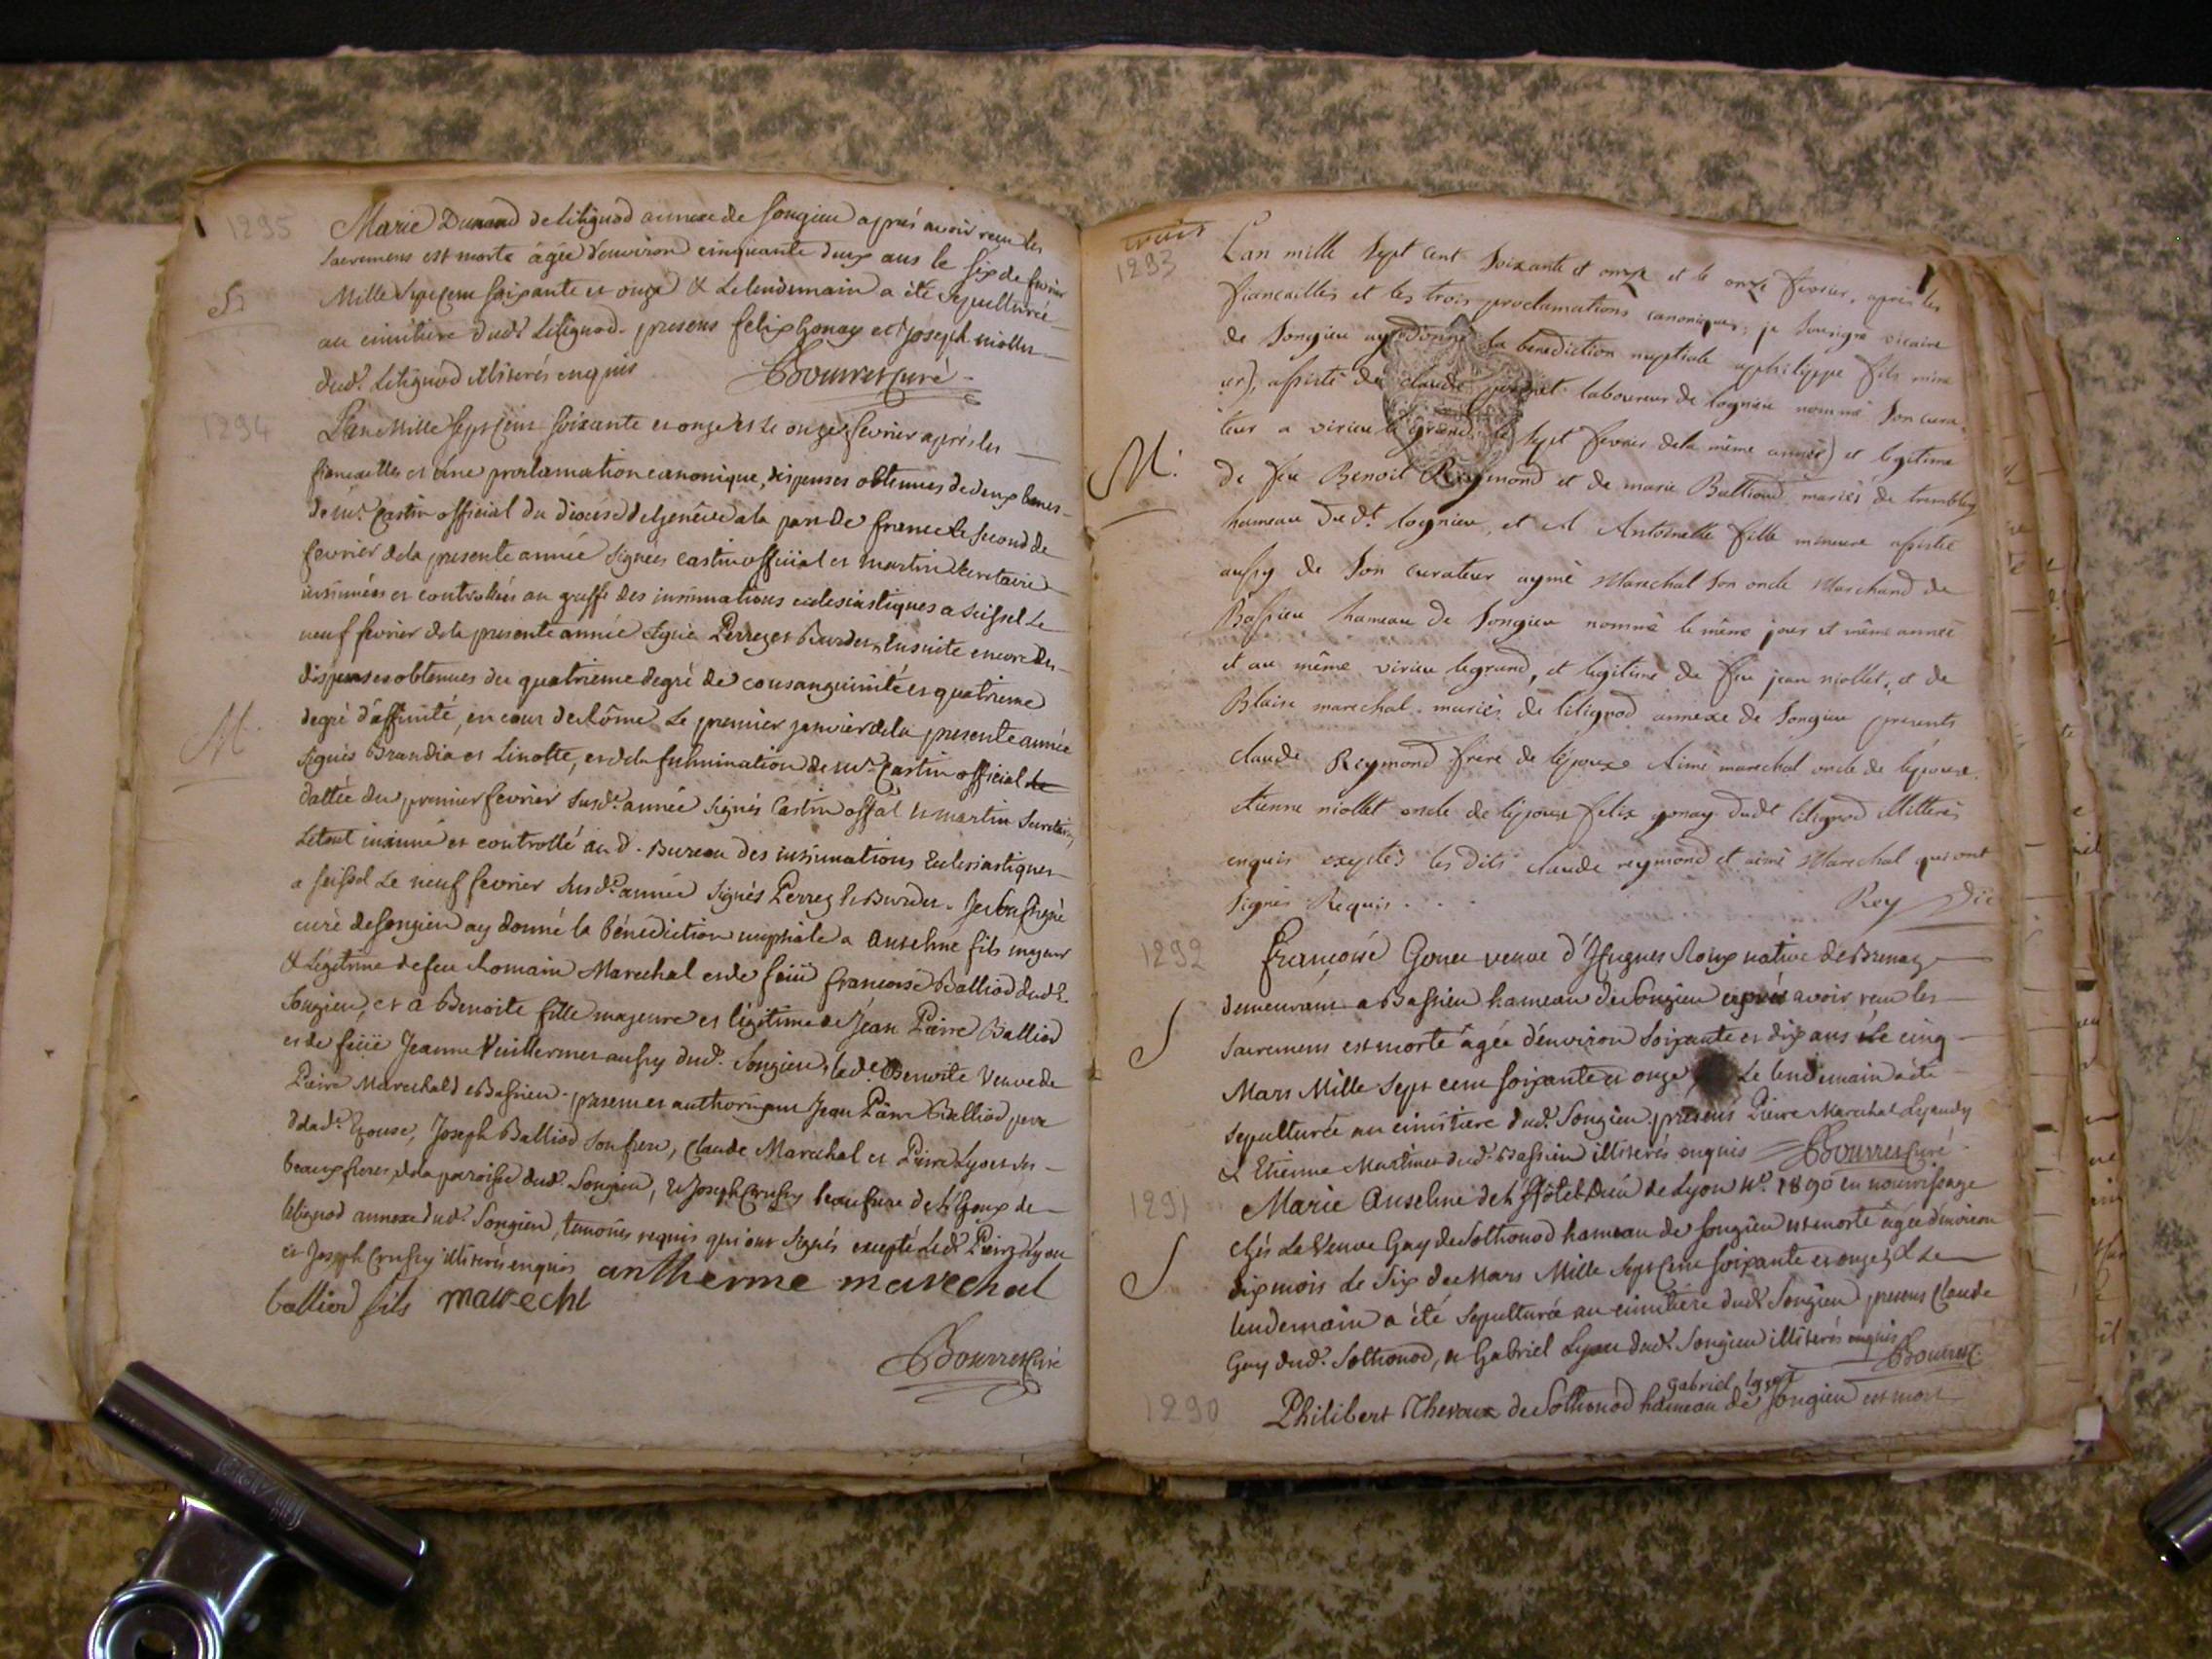 1295
Marie Dunand de litignod annexe de songieu aprés avoir recu les
sacremens est morte âgée d'environ cinquante deux ans le six de fevrier
S.
Mille sept cent soixante et onze & le lendemain a été sepulturée
au cimitiere dud.t litignod. presens felix Gonay et Joseph niollet
dud.t litignod illiterés enquis Bourret curé
1294
L'an Mille Sept Cent soixante et onze et le onze fevrier aprés les
fiancailles et une proclamation canonique, dispenses obtenues de deux bancs
de mr. Castin official du diocese de genêve a la part de france le second de
fevrier de la presente année signées castin official et martin secretaire
insinuées et controllées au greffe des insinuations ecclesiastiques a seissel le
neuf fevrier de la presente année signé Perrez et Burdet, ensuite encore des
dispenses obtenues du quatrieme degré de consanguinité et quatrieme
degré d'affinité, en cour de Rôme le premier janvier de la presente année
M.
signés Grandia et Linotte, et de la fulmination de mr. Castin official
dattée du premier fevrier susd.e année signés Castin offâl et martin secretaire,
le tout insinué et controllé au d. Bureau des insinuations Ecclesiastiques
a seissel le neuf fevrier susd.e année signés Perrez et Burdet. Je soussigné
curé de songieu ay donné la bénédiction nuptiale a Anselme fils majeur
& Légitime de feu Romain Marechal et de feüe francoise Balliod dud.t
Songieu, et a Benoite fille majeure et légitime de Jean Pierre Balliod
et de feüe Jeanne Vuillermet aussy dud.t Songieu, lad.e Benoite veuve de
Pierre Marechal d Bassieu. presens et authorisans Jean Pierre Balliod pere
de lad.e Epouse, Joseph Balliod son frere, Claude Marechal et Pierre Lyon ses
beaux freres, de la paroisse dud.t Songieu, & Joseph beau frere de l'Epoux de
litignod annexe dud.t Songieu, temoins requis qui ont signés excepté led.t Pierre Lyon
et Joseph illiterés enquis antherme marechal
balliod fils marechl
Bourret Curé
trois
1293
L'an mille sept cent soixante et onze et le onze fevrier, aprés les
fiancailles et les trois proclamations canoniques, je sousigné vicaire
de Songieu ay donné la benediction nuptiale a philippe fils mine
ur), assisté de claude laboureur de lognieu nommé son cura
teur a virieu le grand le sept fevrier de la même année) et legitime
M.
de feu Benoit Reymond et de marie Balliod mariés de trembley
hameau du dt. lognieu, et a Antoinette fille mineure assistée
aussy de son curateur aymé Marechal son oncle Marchand de
Bassieu hameau de Songieu nommé le même jour et même année
et au même virieu le grand, et legitime de feu jean niollet, et de
Blaise marechal mariés de litignod annexe de Songieu presents
claude Reymond frere de l'epoux Aimé marechal oncle de l'epouse
etienne niollet oncle de l'epouse felix gonay dudt litignod illiterés
enquis exceptés les dits claude reymond et aimé Marechal qui ont
signés Requis . . . Rey Vic
1292
Françoise Gonet veuve d'Hugues Roux native de Brenaz
demeurant a Bassieu hameau de Songieu aprés avoir recu les
S
sacremens est morte âgée d'environ soixante et dix ans le cinq
Mars Mille sept cent soixante et onze Le lendemain a été
sepulturée au cimitiere dud.t Songieu presens Pierre Marechal
& Etienne Martinet dud.t Bassieu illiterés enquis Bourret Curé
1291
Marie Anselme de l'Hôtel Dieu de Lyon N.o 1890 en nourrissage
chés la veuve Guy de Sothonod hameau de songieu est morte âgée d'environ
S
dix mois le six de Mars Mille Sept Cent soixante et onze, & le
lendemain a été sepulturée au cimitiere dud.t Songieu presens Claude
Guy dud.t Sothonod, et Gabriel Lyon dud.t Songieu illiterés enquis
Bourret C.
gabriel lyon
1290
Philibert Thevoux de Sothonod hameau de songieu est mort